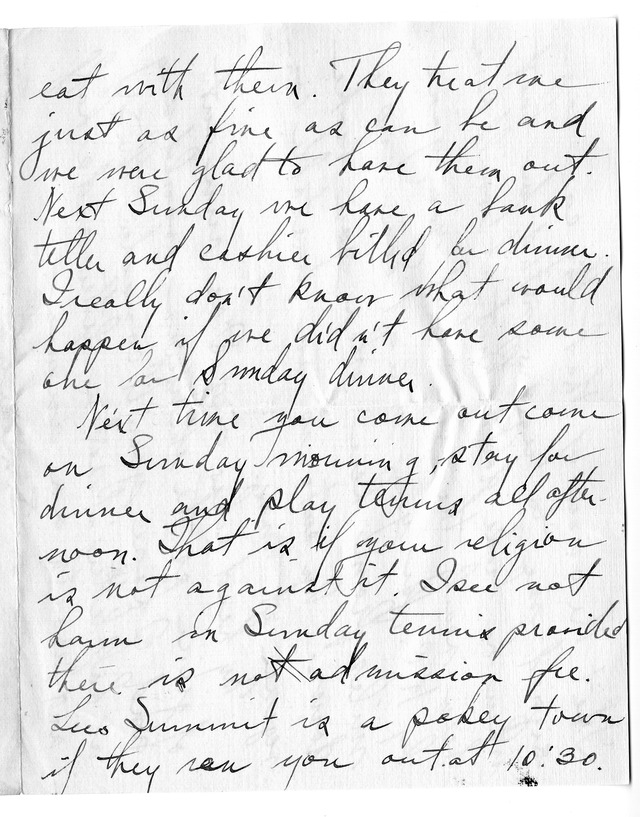 eat with them. They treat me
just as fine as can be and
we were glad to have them out.
Next Sunday we have a bank
teller and cashier billed for dinner.
I really don't know what would
happen if we didn't have some
one for Sunday dinner.
Next time you come out come
on Sunday morning, stay for
dinner and play tennis all after-
noon. That is if your religion
is not against it. I see not
harm in Sunday tennis provided
there is not admission fee.
Summit is a pokey town
if they ran you out at 10:30.